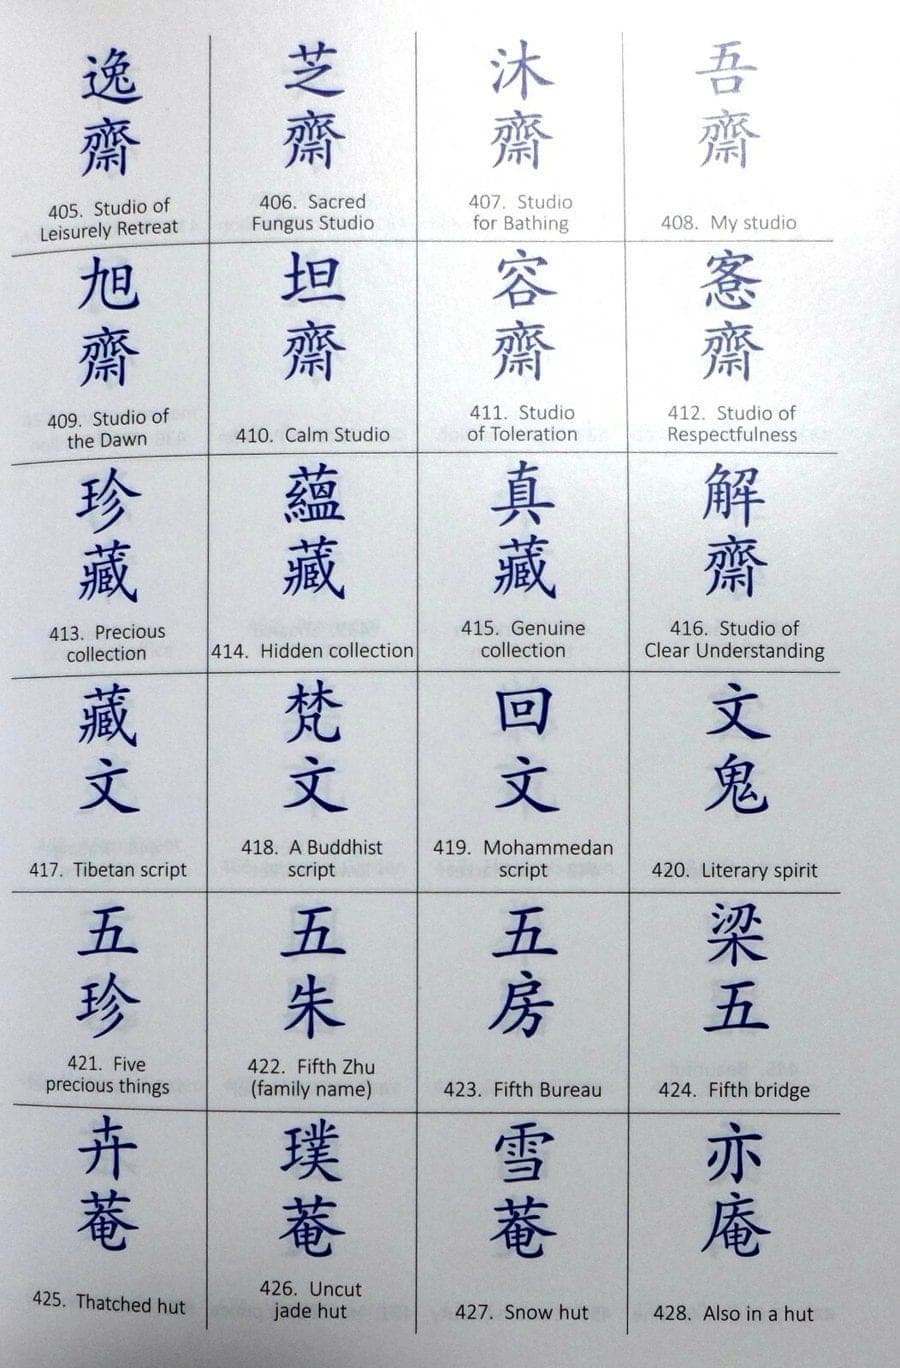 逸
齋
405. Studio of
Leisurely Retreat
芝
齋
406. Sacred
Fungus Studio
沐
齋
407. Studio
for Bathing
吾
齋
408. My studio
旭
齋
409. Studio of
the Dawn
坦
齋
410. Calm Studio
容
齋
411. Studio
of Toleration
愙
齋
412. Studio of
Respectfulness
珍
藏
413. Precious
collection
蘊
藏
414. Hidden collection
真
藏
415. Genuine
collection
解
齋
416. Studio of
Clear Understanding
藏
文
417. Tibetan script
梵
文
418. A Buddhist
script
回
文
419. Mohammedan
script
文
鬼
420. Literary spirit
五
珍
421. Five
precious things
五
朱
422. Fifth Zhu
(family name)
五
房
423. Fifth Bureau
梁
五
424. Fifth bridge
卉
菴
425. Thatched hut
璞
菴
426. Uncut
jade hut
雪
菴
427. Snow hut
亦
庵
428. Also in a hut